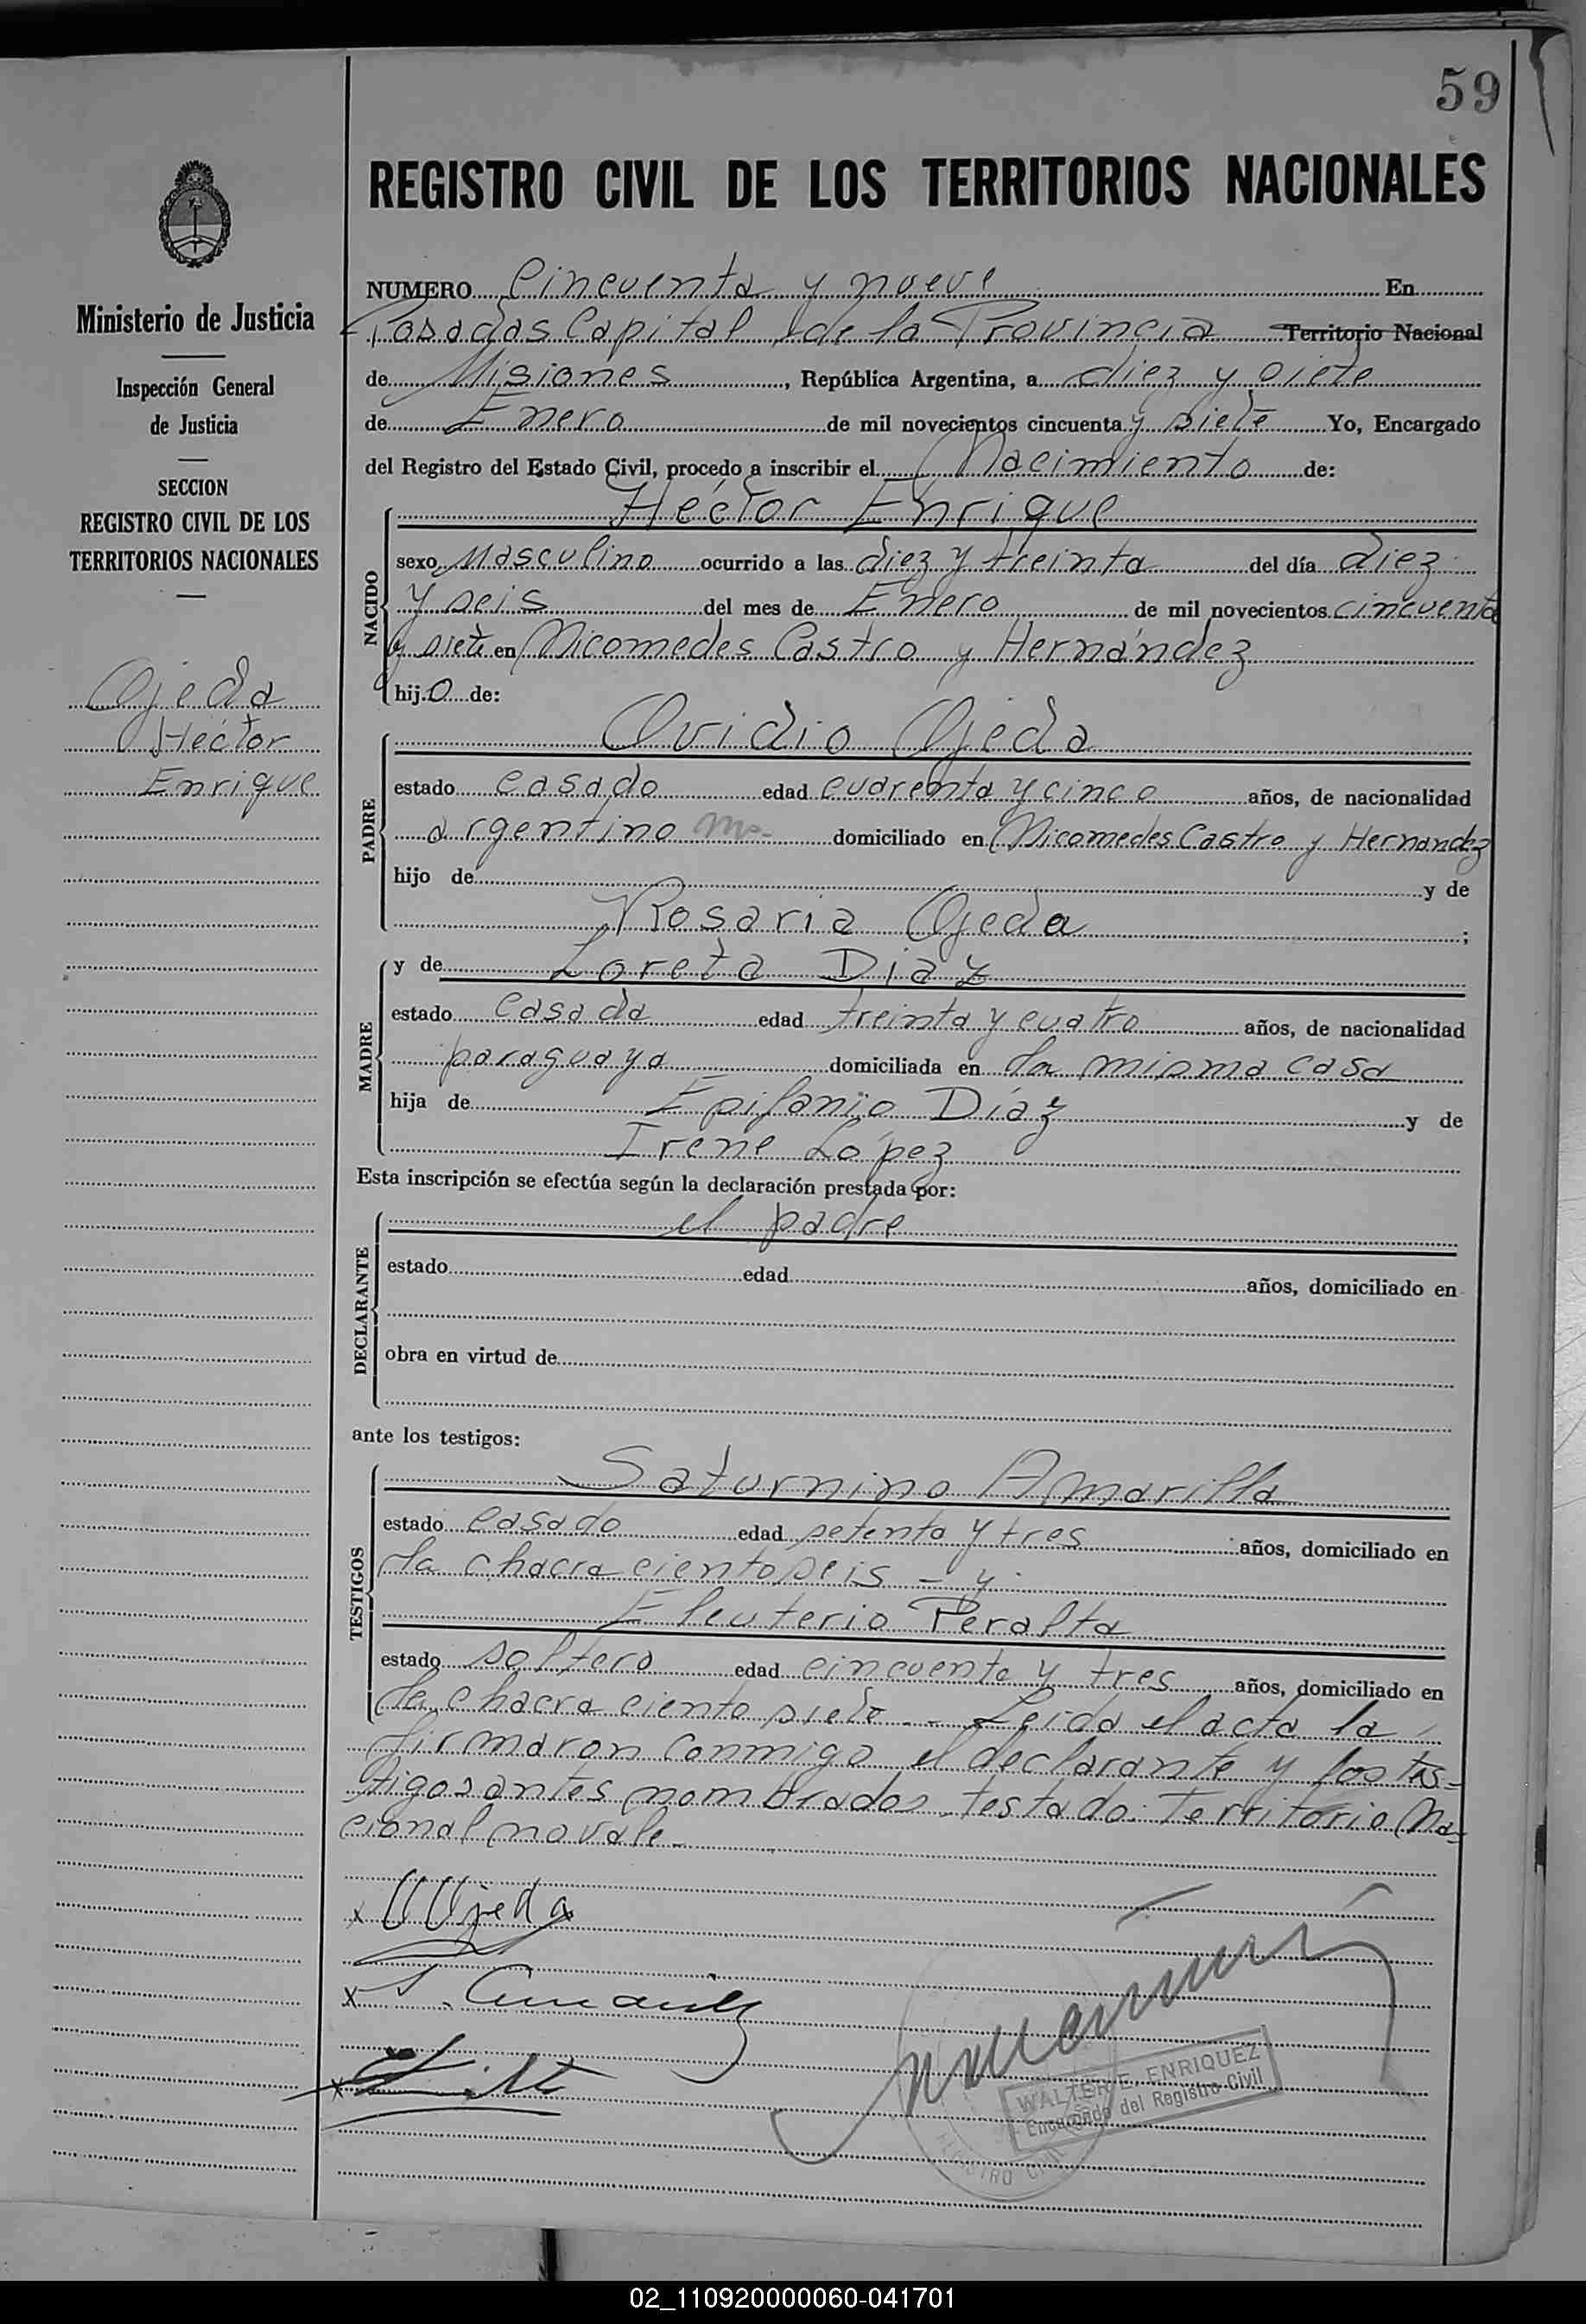 59
REGISTRO CIVIL DE LOS TERRITORIOS NACIONALES
Ministerio de Justicia
Inspección General
de Justicia
SECCION
REGISTRO CIVIL DE LOS
TERRITORIOS NACIONALES
Ojeda
Héctor
Enrique
NUMERO Cincuenta y nueve En
Posadas Capital de la Provincia Territorio Nacional
de Misiones, República Argentina, a diez y siete
de Enero de mil novecientos cincuenta y siete Yo, Encargado
del Registro del Estado Civil, procedo a inscribir el Nacimiento de:
NACIDO
Héctor Enrique
sexo Masculino ocurrido a las diez y treinta del día diez
y seis del mes de Enero de mil novecientos cincuenta
y siete en Nicomedes Castro y Hernández
hijo de:
PADRE
Ovidio Ojeda
estado casado edad cuarenta y cinco años, de nacionalidad
argentino domiciliado en Nicomedes Castro y Hernandez
hijo de y de
Rosaria Ojeda;
MADRE
y de Loreta Diaz
estado casada edad treinta y cuatro años, de nacionalidad
paraguaya domiciliada en la misma casa
hija de Epifanio Díaz y de
Irene López
Esta inscripción se efectúa según la declaración prestada por:
DECLARANTE
el padre
estado edad años, domiciliado en
obra en virtud de
ante los testigos:
TESTIGOS
Saturnino Amarilla
estado casado edad setenta y tres años, domiciliado en
la chacra ciento seis - y
Eleuterio Peralta
estado soltero edad cincuenta y tres años, domiciliado en
la chacra ciento siete - Leída el acta la
firmaron conmigo el declarante y los tes-
tigos antes nombrados. testado: Territorio Na-
cional no vale.-
x Ojeda
x
x
WALTER E. ENRIQUEZ
Encargado del Registro Civil
REGISTRO CIVIL
02_110920000060-041701